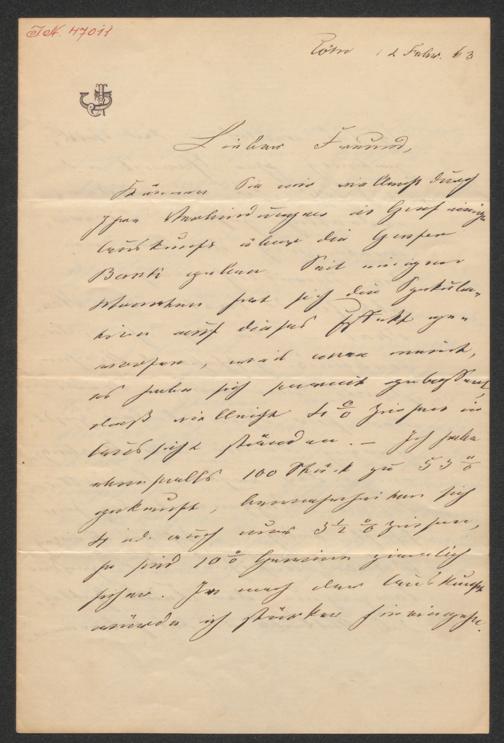 J.N. 47011
Cöln 12 Febr. 63
Lieber Freund,
Können Sie mir vielleicht durch
Ihre Verbindungen in Genf einige
Auskunft über die Genfer
Bank geben Seit einigen
Monaten hat sich die Spekula-
tion auf dieses Effekt ge-
worfen, weil man meint,
es habe sich soweit gebessert,
daß vielleicht 4 % Zinsen in
Aussicht ständen. — Ich habe
ebenfalls 100 Stück zu 53 %
gekauft, bewahrheiten sich
4 od. auch nur 3 ½ % Zinsen,
so sind 10 % Gewinn ziemlich
sicher. Je nach der Auskunft
würde ich stärker hineingehn.